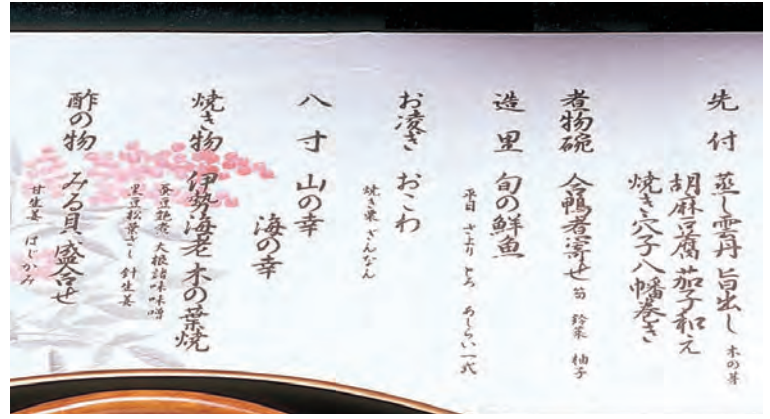 先付 蒸し雲丹 旨出し 木の芽
胡麻豆腐 茄子和え
焼き穴子八幡巻き
煮物碗 合鴨者寄せ 筍 鈴菜 柚子
造里 旬の鮮魚
平目 さより とろ あしらい一式
お凌ぎ おこわ
焼き栗 ぎんなん
八寸 山の幸
海の幸
焼き物 伊勢海老木の葉焼
蚕豆艶煮 大根諸味味噌
黒豆松葉さし 針生姜
酢の物 みる貝、盛合せ
甘生姜 はじかみ